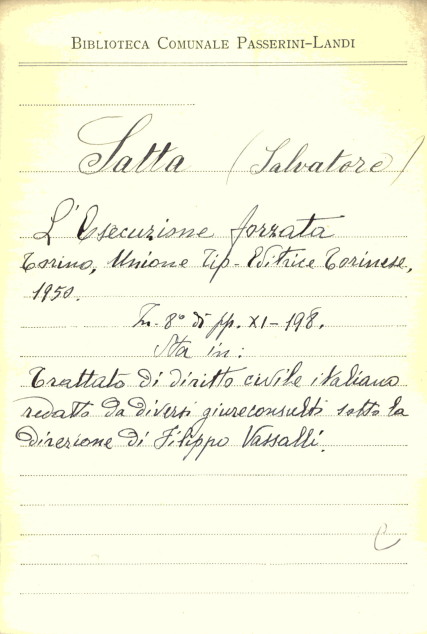 BIBLIOTECA COMUNALE PASSERINI-LANDI
Satta (Salvatore)
L'Esecuzione forzata
Torino, Unione Tip-Editrice Torinese,
1950.
In-8° di pp. XI-198.
Sta in:
Trattato di diritto civile italiano
redatto da diversi giureconsulti sotto la
direzione di Filippo Vassalli.